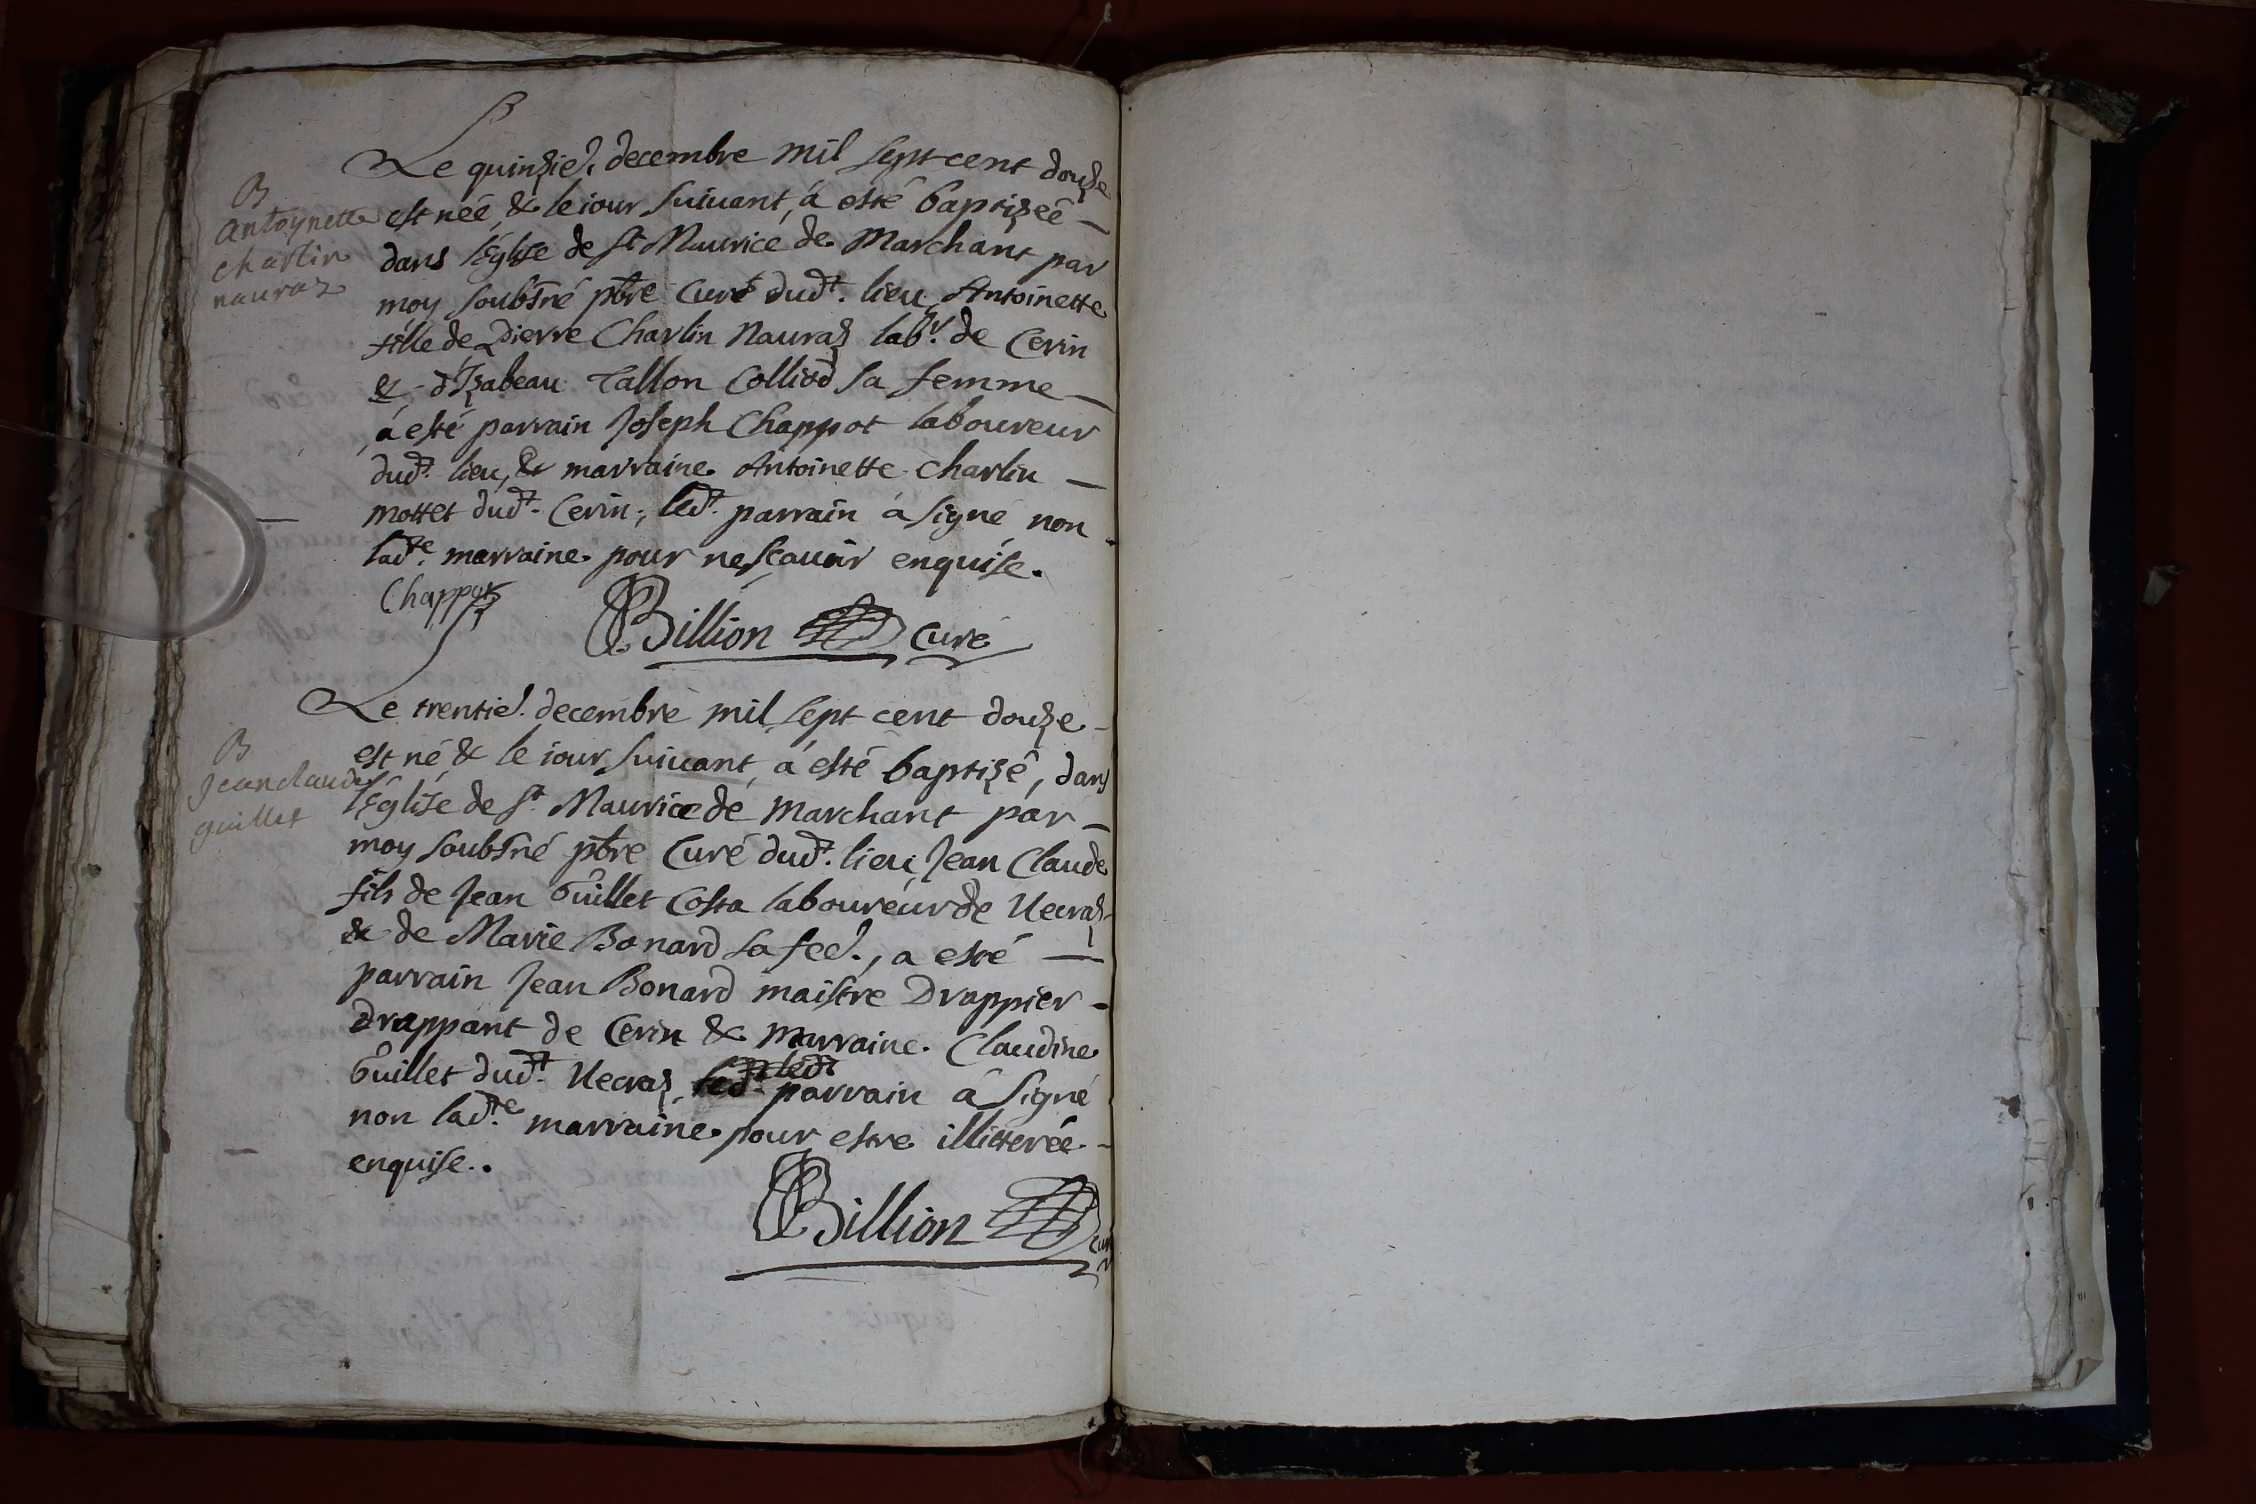 B
Antoynette
charlin
nauraz
Le quinzie. decembre mil sept cent douze
est née, & le iour suiuant, á esté baptizeé
dans l'église de St Maurice de Marchant par
moy soubsné pbre Curé dudt. lieu Antoinette
fille de Pierre Charlin Nauraz labr. de Cerin
& d'Izabeau Tallon Colliod sa femme
á esté parrain Joseph Chappot laboureur
dudt. lieu, & marraine Antoinette Charlin
mottet dudt. Cerin; ledt. parrain á signé non
ladte. marraine pour ne sçauoir enquise.
Chappot
Billion Curé
B
Jean claude
guillet
Le trentie. decembre mil sept cent douze
est né & le iour suiuant, á esté baptizé, dans
l'Église de St. Maurice de Marchant par
moy soubsné pbre Curé dudt. lieu Jean Claude
fils de Jean Guillet Costa laboureur de Uecraz
& de Marie Bonard sa fee., a esté
parrain Jean Bonard maistre Drappier
drappant de Cerin & Marraine Claudine
Guillet dudt. Uecraz, ledt parrain á signé
non ladte. marraine pour estre illitterée
enquise..
Billion